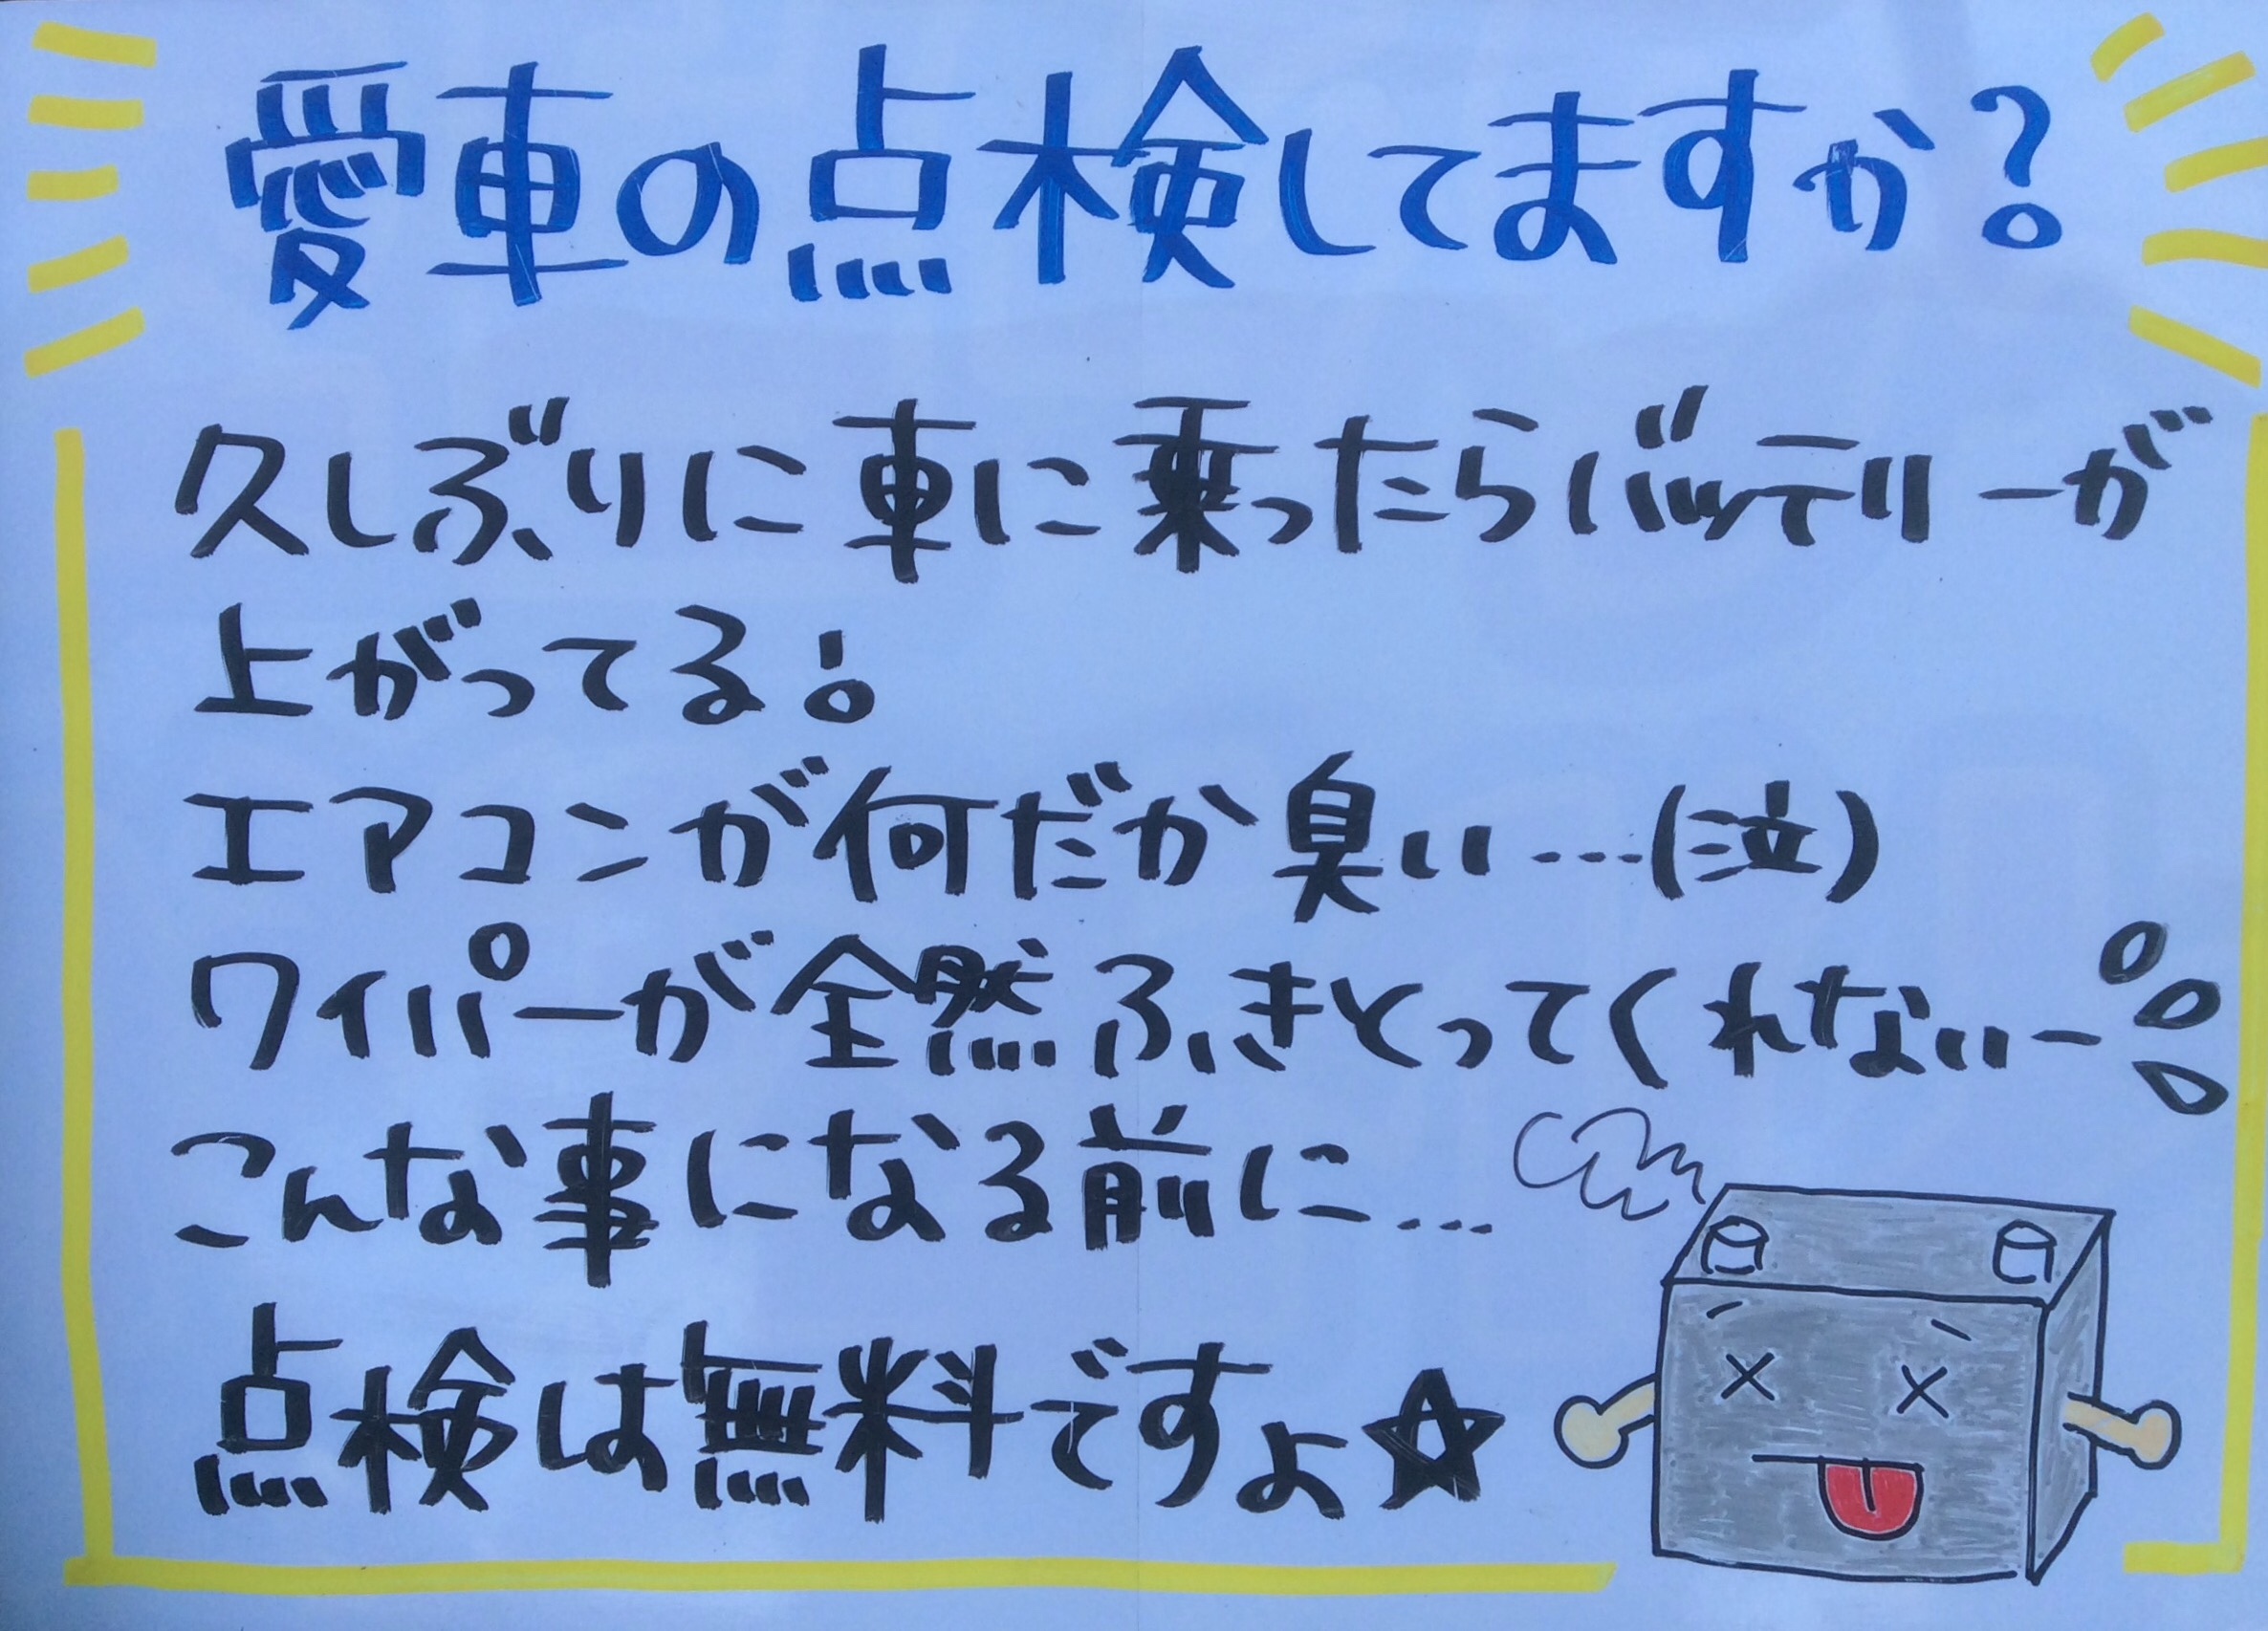 愛車の点検してますか?
久しぶりに車に乗ったらバッテリーが
上がってる!
エアコンが何だか臭い…(泣)
ワイパーが全然ふきとってくれないー
こんな事になる前に…
点検は無料ですよ☆